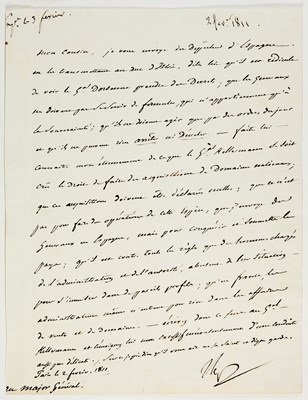 le 3 février
2 fév. 1811
Mon Cousin, je vous envoye des dépêches d'Espagne
en les transmettant au duc d'Istrie, dites lui qu'il est ridicule
de voir le Gal Dorsenne prendre des Décrets, que les Généraux
ne doivent pas se servir de formules, qui n'appartiennent qu'à
la Souveraineté; qu'ils ne doivent agir que par des ordres du jour
et qu'ils ne peuvent rien arrêter ni Décréter — faites lui
connaitre mon étonnement de ce que le Gal Kellermann se soit
cru le Droit de faire des acquisitions de Domaines nationaux,
que ces acquisitions doivent être déclarées nulles; que ce n'est
pas pour faire des opérations de cette espèce, que j'envoye des
Généraux en Espagne, mais pour conquérir et soumettre le
pays; qu'il est contre toutes les règles que des hommes chargés
de l'administration et de l'autorité, abusent de leur situation
pour s'immiscer dans de pareils profits; qu'en france, les
administrateurs même n'entrent pour rien dans les affaires
de vente et de domaines — écrivez dans ce sens au Gal
Kellermann et témoignez lui mon mécontentement d'une conduite
aussi peu délicate. Sur ce je prie Dieu qu'il vous ait en sa sainte et digne garde.
Paris le 2 février 1811.
au major Général.